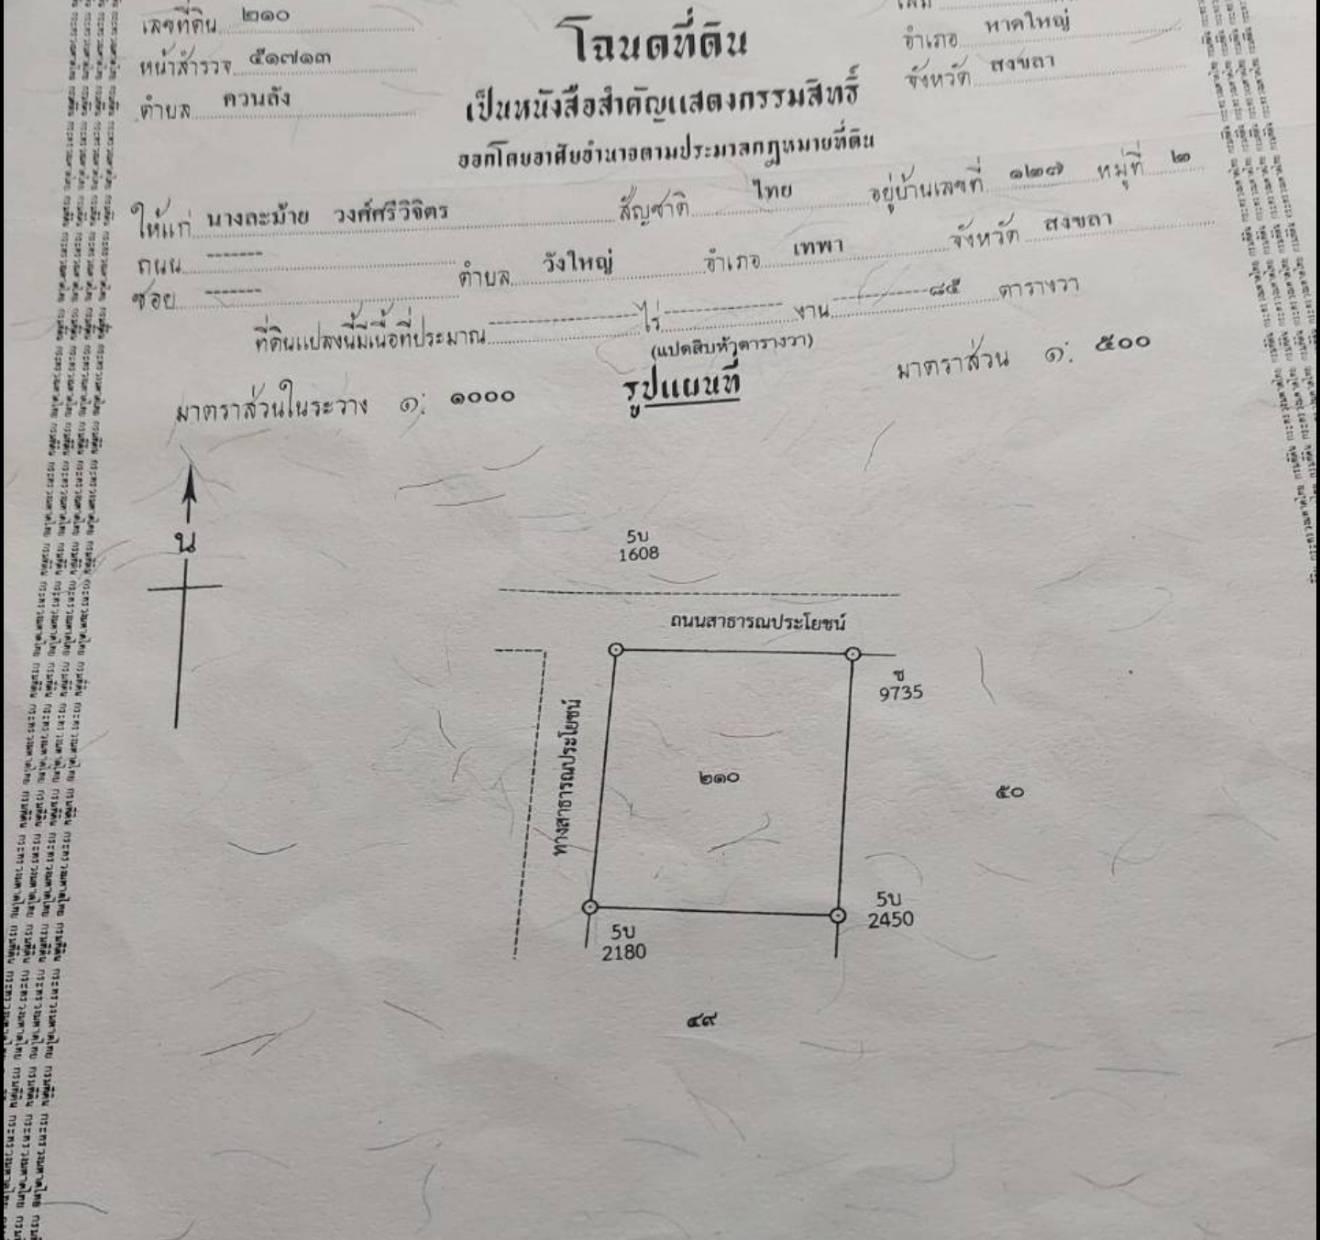 เลขที่ดิน ๒๑๐
หน้าสำรวจ ๕๑๗๑๓
ตำบล ควนลัง
โฉนดที่ดิน
เป็นหนังสือสำคัญแสดงกรรมสิทธิ์
ออกโดยอาศัยอำนาจตามประมวลกฎหมายที่ดิน
อำเภอ หาดใหญ่
จังหวัด สงขลา
ให้แก่ นางละม้าย วงศ์ศรีวิจิตร สัญชาติ ไทย อยู่บ้านเลขที่ ๑๒๗ หมู่ที่ ๒
ถนน ------- ตำบล วังใหญ่ อำเภอ เทพา จังหวัด สงขลา
ซอย -------
ที่ดินแปลงนี้มีเนื้อที่ประมาณ ไร่ งาน ๘๕ ตารางวา
(แปดสิบห้าตารางวา)
มาตราส่วนในระวาง ๑: ๑๐๐๐ รูปแผนที่ มาตราส่วน ๑: ๕๐๐
น
5บ
1608
ถนนสาธารณประโยชน์
ช
9735
ทางสาธารณประโยชน์
๒๑๐
๕๐
5บ
2450
5บ
2180
๔๙
กรมที่ดิน กระทรวงมหาดไทย